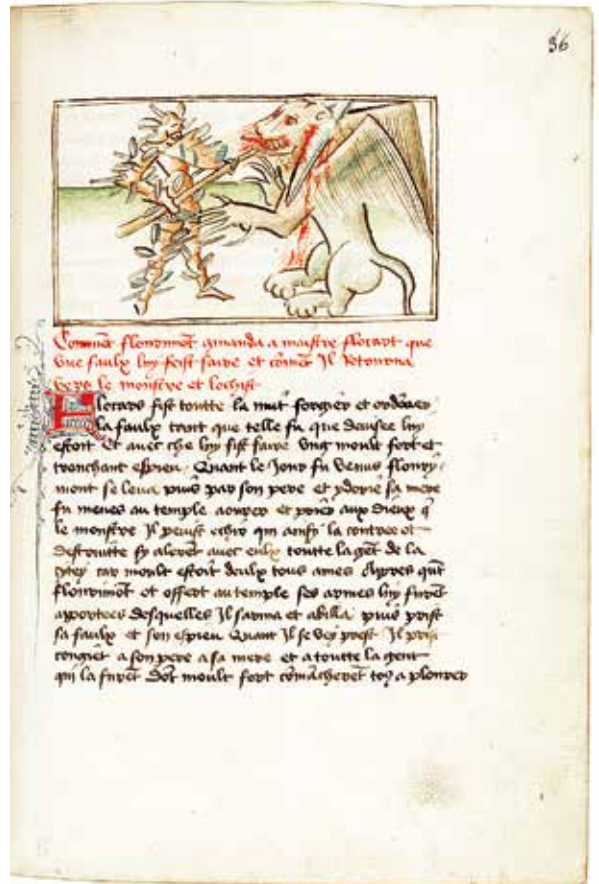 36
Comment flourimont comanda a maistre flocart que
une faulx luy feist faire et coment Il retourna
vers le monstre et lochist
Flocars fist toutte la nuit forgier et ordõner
la faulx tant que telle fu que devisee luy
estoit Et avec che luy fist faire ung moult fort et
trenchant espieu Quant le Jour fu venus flouri
mont se leva puis par son pere et ydorie sa mere
fu menes au temple aourer et prier aux dieux q̃
le monstre Il peuist ochir qui ainsy la contree ot
destruitte sy alerẽt avec eulx toutte la gẽt de la
cytey car moult estoit deulx tous ames Apres qũt
flourimont et offert au temple ses armes luy furẽt
aportees desquelles Il sarma et abilla puis prist
sa faulx et son espieu Quant Il se vey prest Il prist
congiet a son pere a sa mere et a toutte la gent
qui la furẽt dõt moult fort cõmẽcherẽt to⁹ a plourer